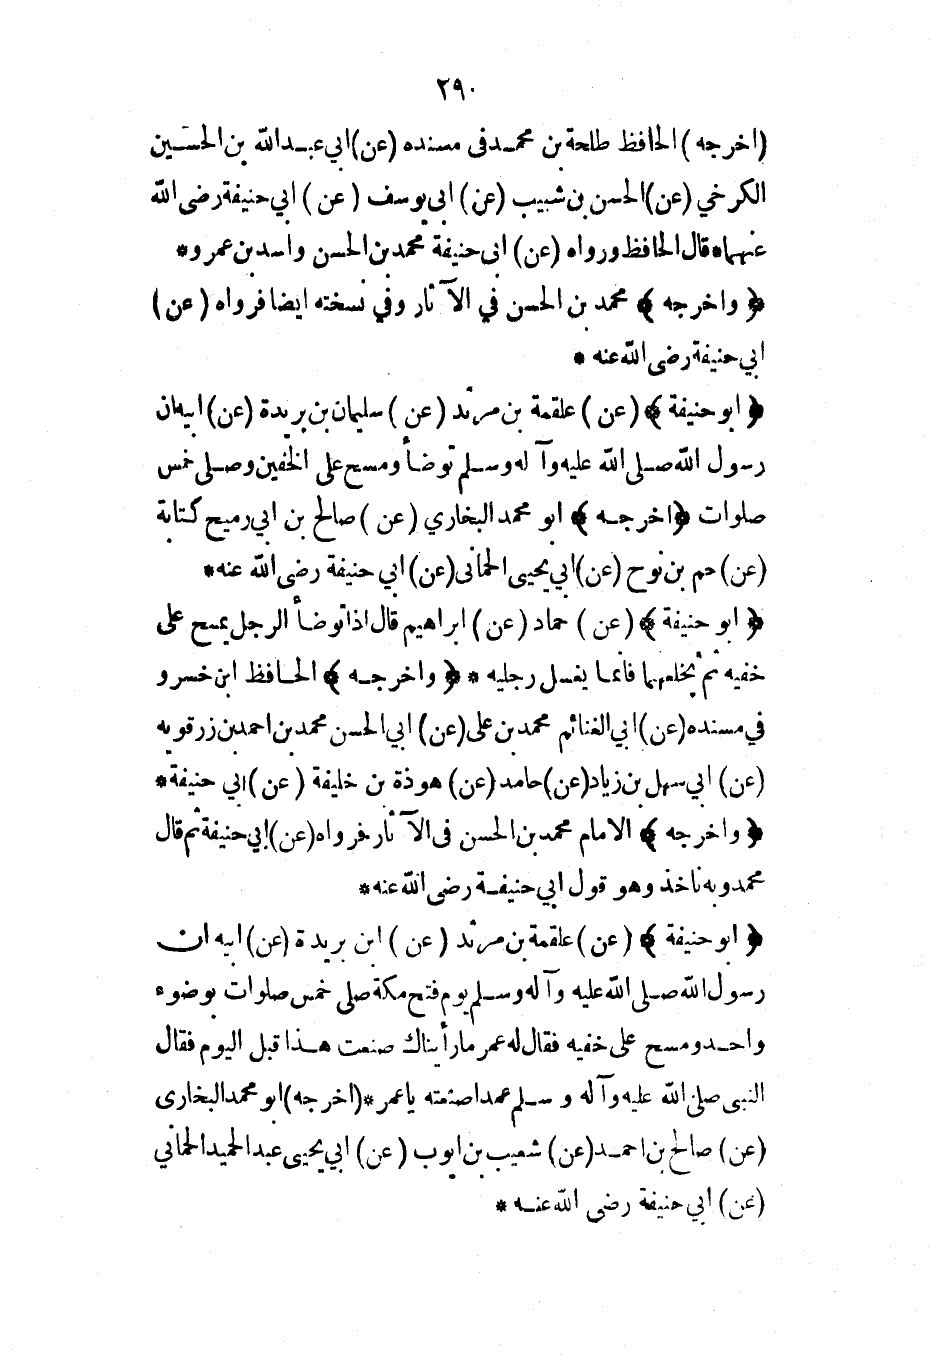 ٢٩٠
(اخرجه) الحافظ طلحة بن محمد فى مسنده (عن) ابي عبد الله بن الحسين
الكرخي (عن) الحسن بن شبيب (عن) ابى يوسف (عن) ابي حنيفة رضى الله
عنهما * قال الحافظ ورواه (عن) ابى حنيفة محمد بن الحسن واسد بن عمرو *
﴿ واخرجه ﴾ محمد بن الحسن في الآثار وفي نسخته ايضا فرواه (عن)
ابي حنيفة رضى الله عنه *
﴿ ابو حنيفة ﴾ (عن) علقمة بن مرثد (عن) سليمان بن بريدة (عن) ابيه ان
رسول الله صلى الله عليه وآله وسلم توضأ ومسح على الخفين وصلى خمس
صلوات ﴿ اخرجه ﴾ ابو محمد البخاري (عن) صالح بن ابي رميح كتابة
(عن) حم بن نوح (عن) ابي يحيى الحمانى (عن) ابي حنيفة رضى الله عنه *
﴿ ابو حنيفة ﴾ (عن) حماد (عن) ابراهيم قال اذا توضأ الرجل يمسح على
خفيه ثم يخلعهما فانما يغسل رجليه * ﴿ واخرجه ﴾ الحافظ ابن خسرو
في مسنده (عن) ابي الغنائم محمد بن على (عن) ابي الحسن محمد بن احمد بن زرقويه
(عن) ابي سهل بن زياد (عن) حامد (عن) هوذة بن خليفة (عن) ابي حنيفة *
﴿ واخرجه ﴾ الامام محمد بن الحسن فى الآثار فرواه (عن) ابي حنيفة ثم قال
محمد وبه ناخذ وهو قول ابي حنيفة رضى الله عنه *
﴿ ابو حنيفة ﴾ (عن) علقمة بن مرثد (عن) ابن بريدة (عن) ابيه ان
رسول الله صلى الله عليه وآله وسلم يوم فتح مكة صلى خمس صلوات بوضوء
واحد ومسح على خفيه فقال له عمر ما رأيناك صنعت هذا قبل اليوم فقال
النبى صلى الله عليه وآله وسلم عمدا صنعته يا عمر * (اخرجه) ابو محمد البخارى
(عن) صالح بن احمد (عن) شعيب بن ايوب (عن) ابي يحيى عبد الحميد الحماني
(عن) ابي حنيفة رضى الله عنه *